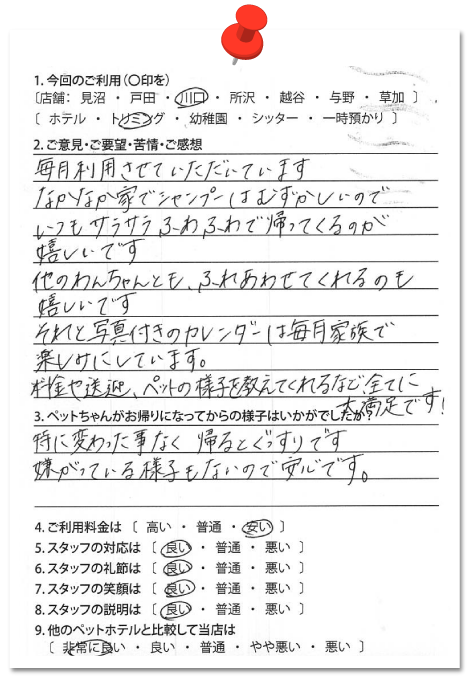 1. 今回のご利用（〇印を）
〔店舗： 見沼 ・ 戸田 ・ 川口 ・ 所沢 ・ 越谷 ・ 与野 ・ 草加 〕
〔 ホテル ・ トリミング ・ 幼稚園 ・ シッター ・ 一時預かり 〕
2. ご意見・ご要望・苦情・ご感想
毎月利用させていただいています
なかなか家でシャンプーはむずかしいので
いつもサラサラふわふわで帰ってくるのが
嬉しいです
他のわんちゃんとも、ふれあわせてくれるのも
嬉しいです
それと写真付きのカレンダーは毎月家族で
楽しみにしています。
料金や送迎、ペットの様子を教えてくれるなど全てに
大満足です!
3. ペットちゃんがお帰りになってからの様子はいかがでしたか？
特に変わった事なく 帰るとぐっすりです
嫌がっている様子もないので安心です。
4. ご利用料金は 〔 高い ・ 普通 ・ 安い 〕
5. スタッフの対応は 〔 良い ・ 普通 ・ 悪い 〕
6. スタッフの礼節は 〔 良い ・ 普通 ・ 悪い 〕
7. スタッフの笑顔は 〔 良い ・ 普通 ・ 悪い 〕
8. スタッフの説明は 〔 良い ・ 普通 ・ 悪い 〕
9. 他のペットホテルと比較して当店は
〔 非常に良い ・ 良い ・ 普通 ・ やや悪い ・ 悪い 〕